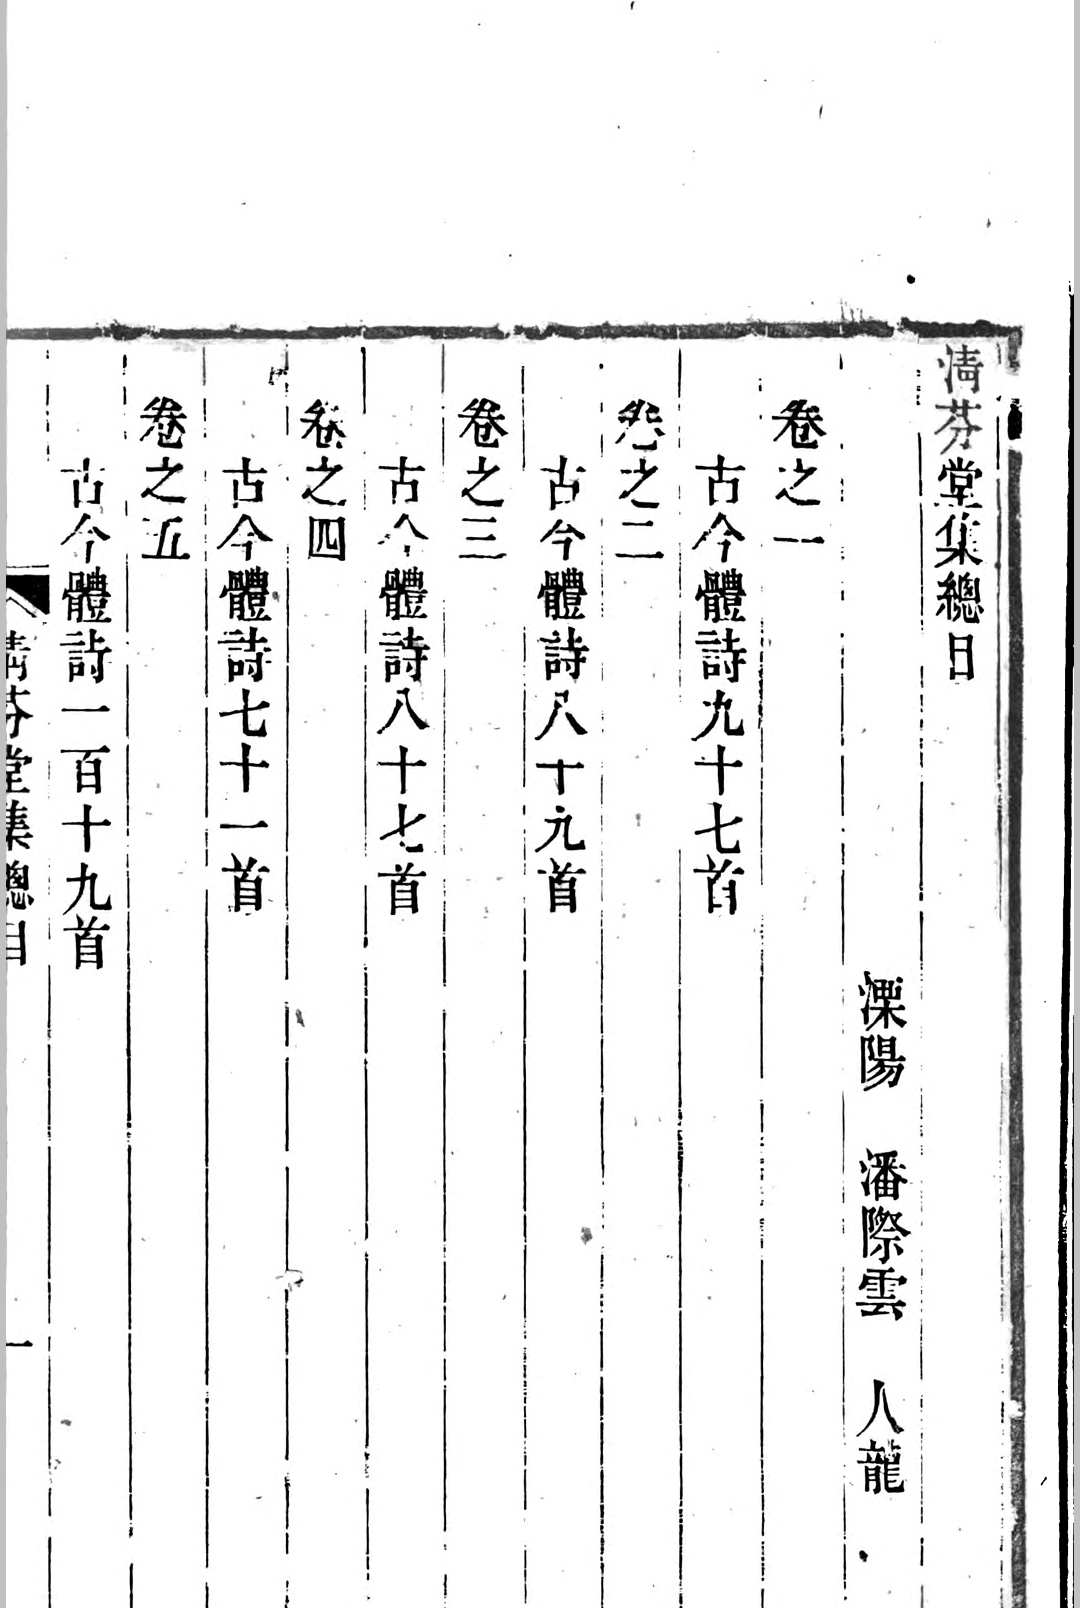 清芬堂集總目
溧陽 潘際雲 人龍
卷之一
古今體詩九十七首
卷之二
古今體詩八十九首
卷之三
古今體詩八十七首
卷之四
古今體詩七十一首
卷之五
古今體詩一百十九首
清芬堂集總目 一